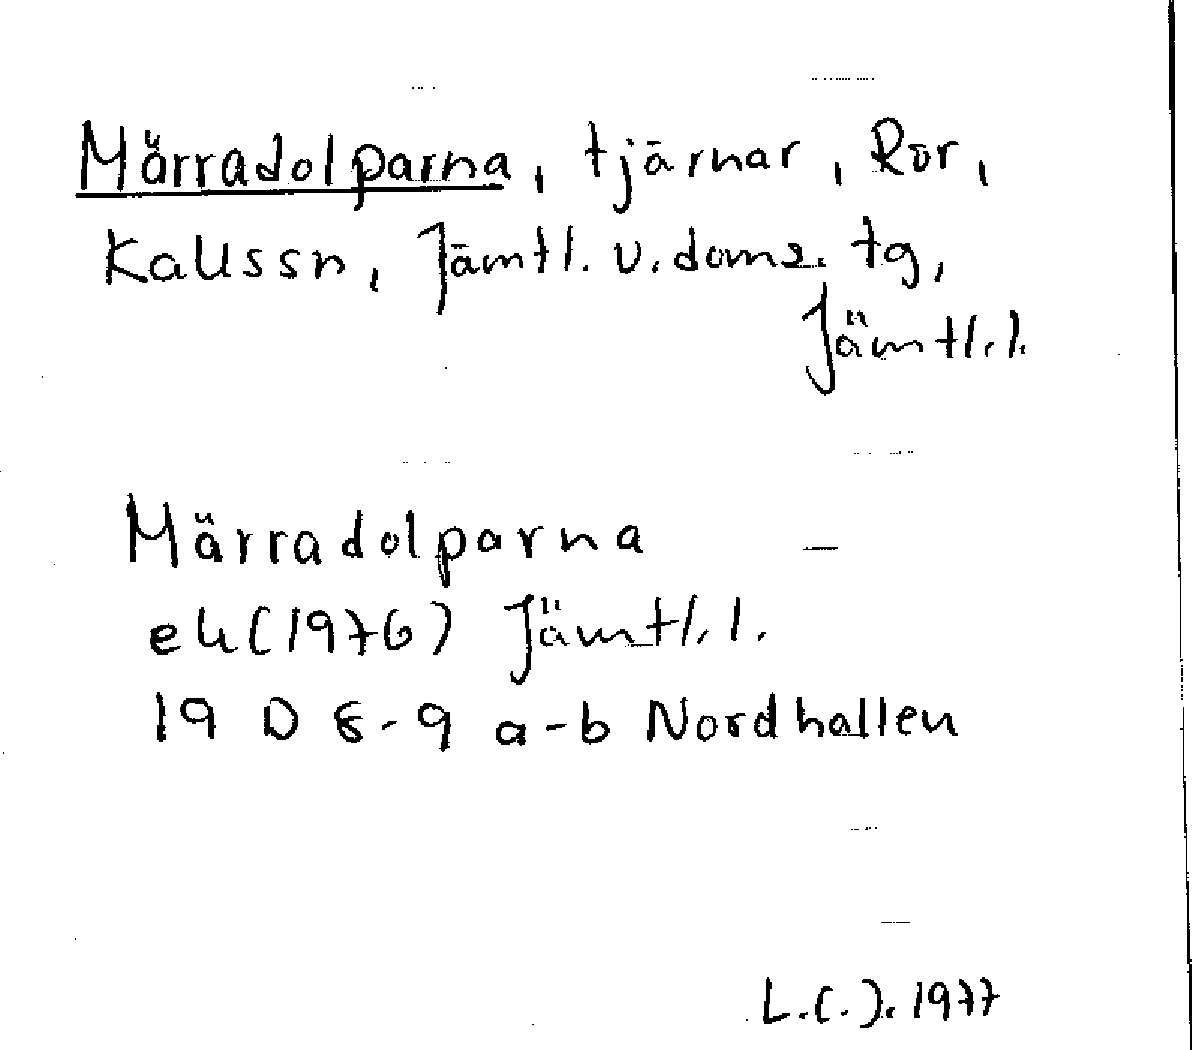 Märradolparna, tjärnar, Rör,
Kallssn, Jämtl. v. doms. tg,
Jämtl. l.
Märradolparna —
ek (1976) Jämtl. l.
19 D 8-9 a-b Nordhallen
1977